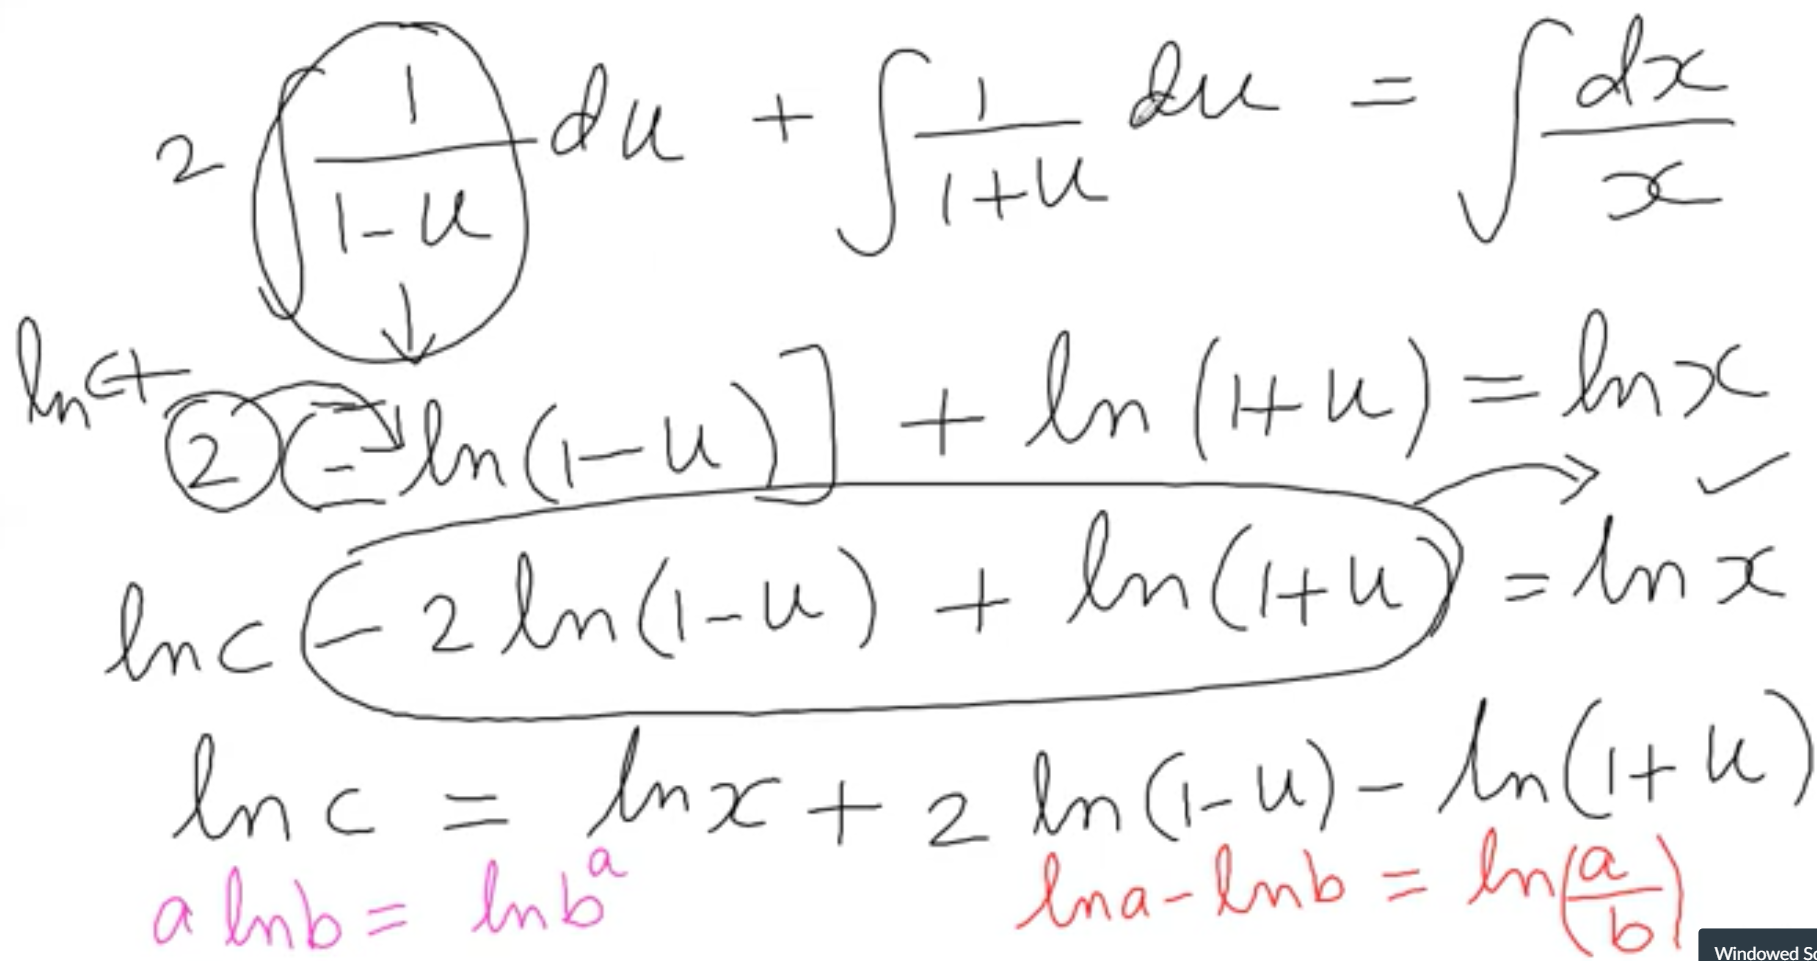 2 ∫ 1/(1-u) du + ∫ 1/(1+u) du = ∫ dx/x
ln c + 2[-ln(1-u)] + ln(1+u) = ln x
ln c - 2 ln(1-u) + ln(1+u) = ln x
ln c = ln x + 2 ln(1-u) - ln(1+u)
a ln b = ln b^a ln a - ln b = ln(a/b)